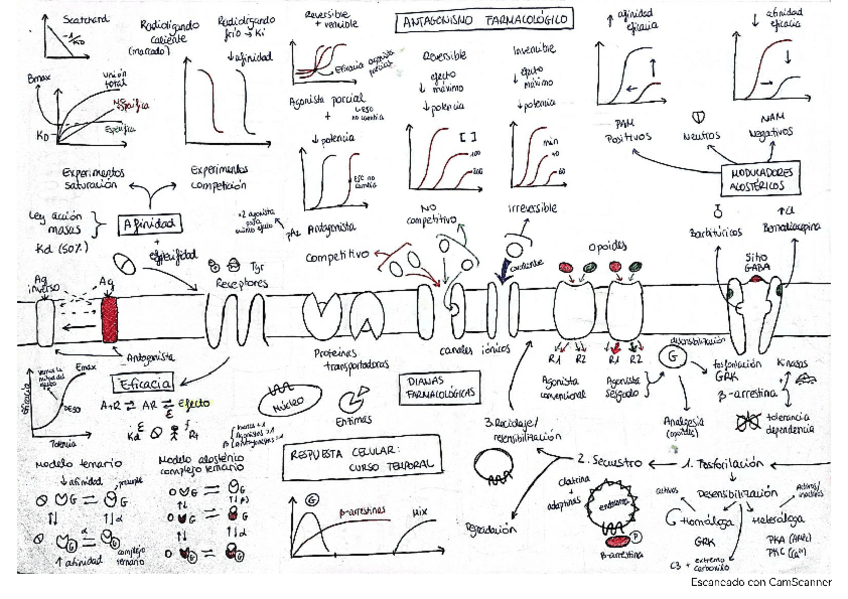 Scatchard
-1/KD
Radioligando
caliente
(marcado)
Radioligando
frío → Ki
↓ afinidad
Bmax
unión
total
Específica
KD
Experimentos
saturación
Experimentos
competición
Ley acción
masas
Kd (50%)
Afinidad
+
especifidad
Reversible
+ variable
Eficacia agonista
parcial
Agonista parcial
+
↓ potencia
ESC no
cambia
pA2 Antagonista
ANTAGONISMO FARMACOLÓGICO
Reversible
↓ efecto
máximo
↓ potencia
[ ]
100
NO
competitivo
Competitivo
Irreversible
↓ efecto
máximo
↓ potencia
min
40
60
irreversible
covalente
↑ afinidad
eficacia
↓ afinidad
eficacia
PAM
Positivos
Neutros
NAM
Negativos
MODULADORES
ALOSTÉRICOS
Barbitúricos
Benzodiacepina
Sitio
GABA
Ag
inverso
Ag
Antagonista
Receptores
Tyr
Proteínas
transportadoras
canales iónicos
opioides
R1 R2
R1 R2
Agonista
convencional
Agonista
sesgado
desensibilización
G
fosforilación
GRK
β-arrestina
Kinasas
tolerancia
dependencia
Analgesia
(opioides)
Emax
Eficacia
Potencia
Eficacia
A+R ⇌ AR ⇌ efecto
Kd
Núcleo
Enzimas
DIANAS
FARMACOLÓGICAS
Modelo ternario
↓ afinidad
α
↑ afinidad
complejo
ternario
Modelo alostérico
complejo ternario
RESPUESTA CELULAR:
CURSO TEMPORAL
G
β-arrestinas
Mix
3. Reciclaje/
resensibilización
Degradación
2. Secuestro
clatrina
+
adaptinas
endosoma
P
β-arrestina
1. Fosforilación
Desensibilización
activos
Activos/
inactivos
Homóloga
GRK
Heteróloga
PKA (AMPc)
PKC (Ca²⁺)
C3 + extremo
carboxilo
Escaneado con CamScanner